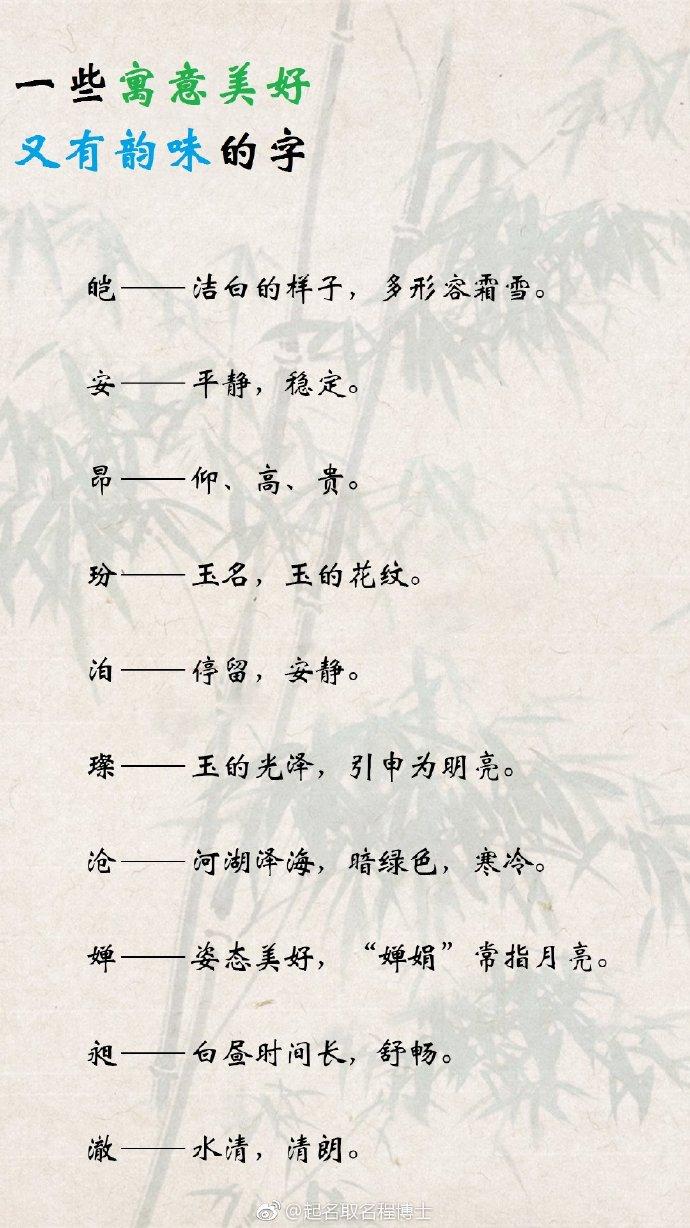 一些寓意美好
又有韵味的字
皑——洁白的样子，多形容霜雪。
安——平静，稳定。
昂——仰、高、贵。
玢——玉名，玉的花纹。
泊——停留，安静。
璨——玉的光泽，引申为明亮。
沧——河湖泽海，暗绿色，寒冷。
婵——姿态美好，“婵娟”常指月亮。
昶——白昼时间长，舒畅。
澈——水清，清朗。
@起名取名程博士